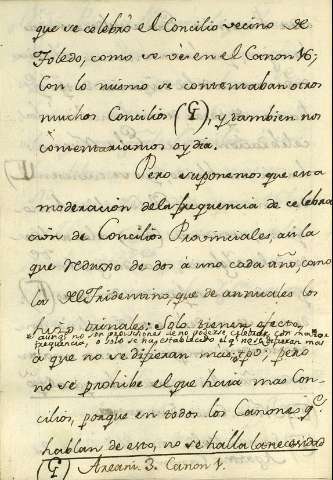 que se celebrò el Concilio vecino de
Toledo, como se vè en el Canon 16;
Con lo mismo se contentaban otros
muchos Concilios (G), y tambien nos
contentariamos oy dia.
Pero suponemos que esta
moderacion de la frequencia de celebra
cion de Concilios Provinciales, asi la
que reduxo de dos à uno cada año, como
la del Tridentino, que de annuales los
hizo trinales: Solo tienen efecto,
frequencia, o solo se ha establecido el q.e no se difieran mas
à que no se difieran mas tpo; pero
no se prohibe el que haia mas Con-
cilios, porque en todos los Canones q.e
hablan de esto, no se halla la necesidad
(G) Areani. 3. Canon 1.